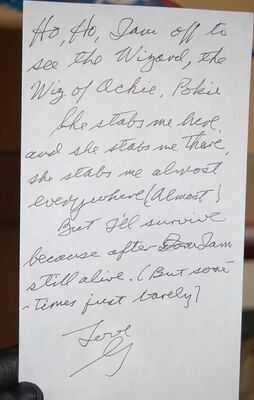 Ho, Ho, I am off to
see the Wizard, the
Wiz of Ochie, Pokie
She stabs me here,
and she stabs me there,
she stabs me almost
everywhere (Almost)
But I'll survive
because after I am
still alive. (But some
-times just barely)
Love
G